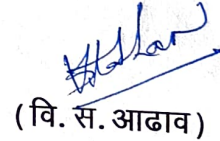 (वि. स. आढाव)